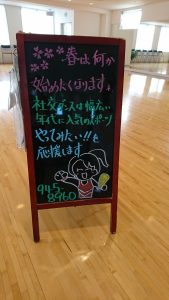 春は何か
始めたくなります。
社交ダンスは幅広い
年代に人気のスポーツ
やってみたい!!を
応援します
945-
8960